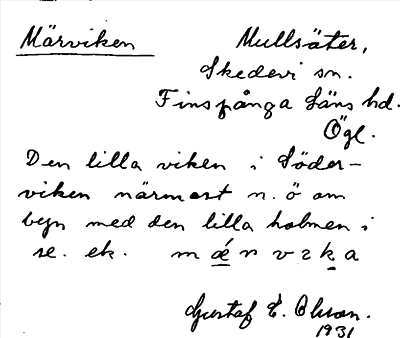 Märviken
Mullsäter,
Skedevi sn.
Finspånga Läns hd.
Ögl.
Den lilla viken i Söder-
viken närmast n. ö om
byn med den lilla holmen i
se. ek. m ǽ r v ɪ k a
Gustaf E. Olsson.
1931